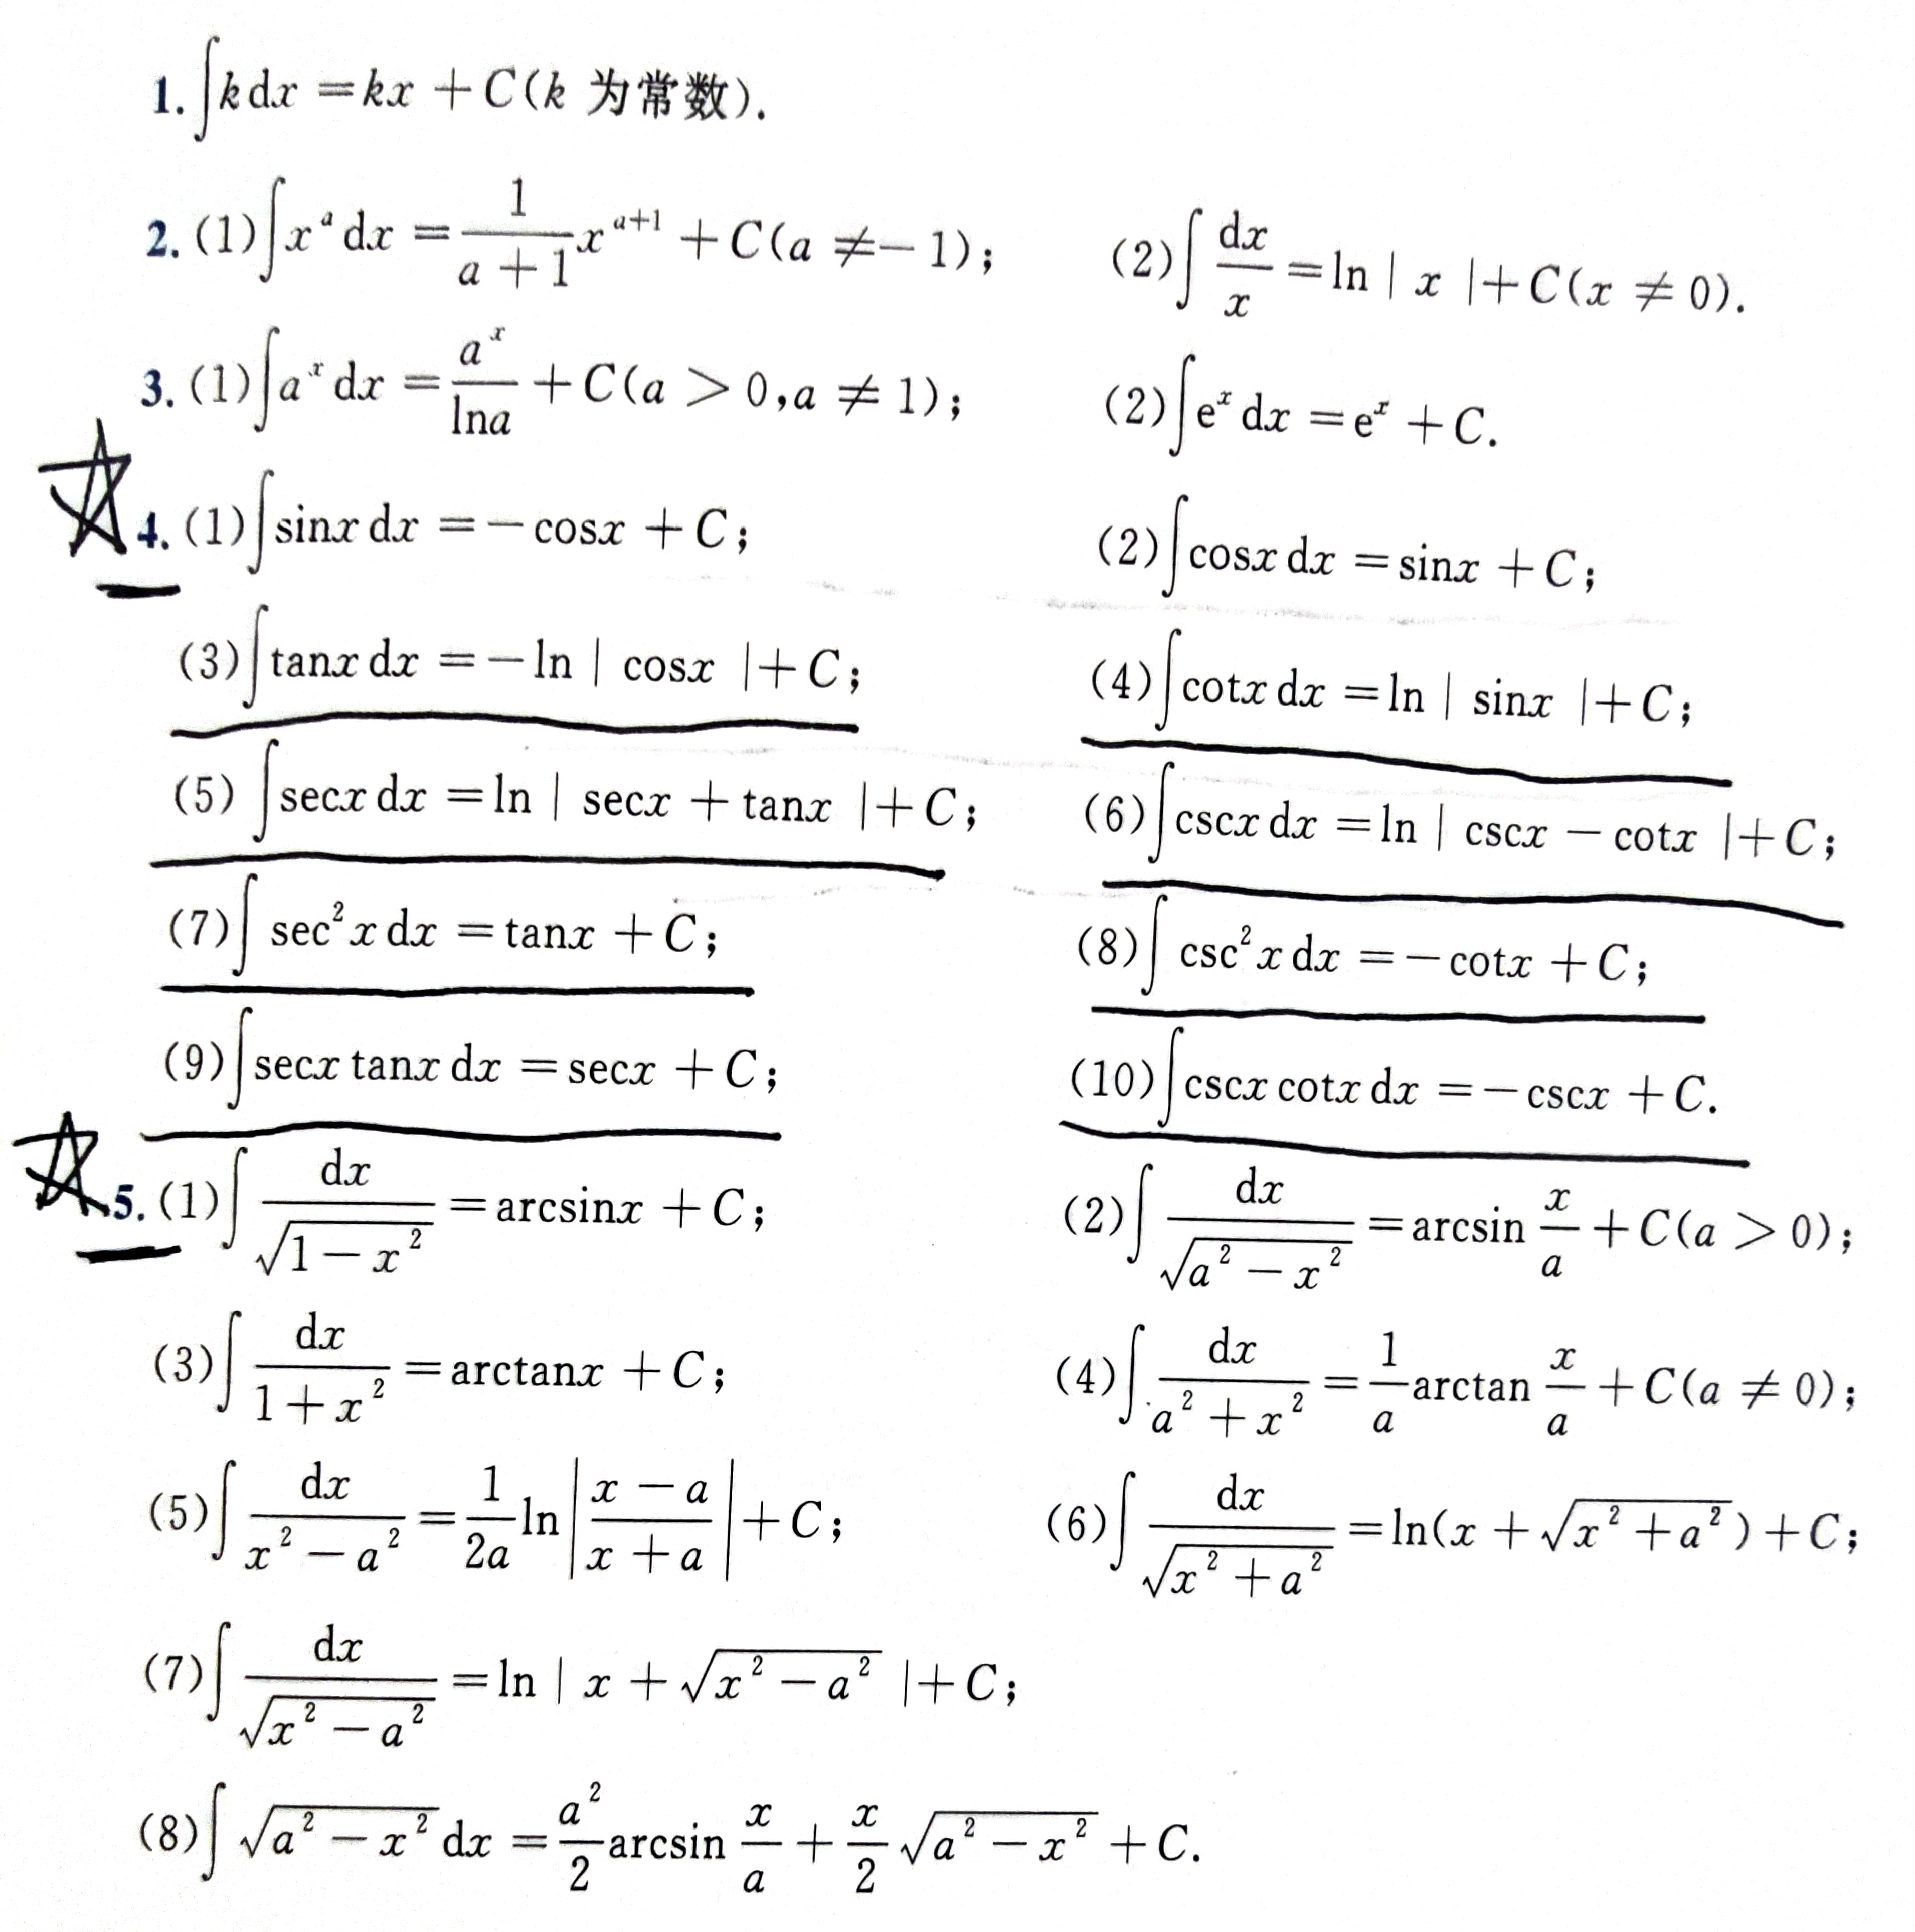 1. ∫kdx = kx + C(k 为常数).
2. (1)∫x^a dx = \frac{1}{a+1}x^{a+1} + C(a ≠ −1); (2)∫\frac{dx}{x} = ln | x | + C(x ≠ 0).
3. (1)∫a^x dx = \frac{a^x}{lna} + C(a > 0,a ≠ 1); (2)∫e^x dx = e^x + C.
4. (1)∫sinx dx = − cosx + C; (2)∫cosx dx = sinx + C;
(3)∫tanx dx = −ln | cosx | + C; (4)∫cotx dx = ln | sinx | + C;
(5)∫secx dx = ln | secx + tanx | + C; (6)∫cscx dx = ln | cscx − cotx | + C;
(7)∫sec²x dx = tanx + C; (8)∫csc²x dx = − cotx + C;
(9)∫secx tanx dx = secx + C; (10)∫cscx cotx dx = − cscx + C.
5. (1)∫\frac{dx}{\sqrt{1−x²}} = arcsinx + C; (2)∫\frac{dx}{\sqrt{a²−x²}} = arcsin\frac{x}{a} + C(a > 0);
(3)∫\frac{dx}{1+x²} = arctanx + C; (4)∫\frac{dx}{a²+x²} = \frac{1}{a}arctan\frac{x}{a} + C(a ≠ 0);
(5)∫\frac{dx}{x²−a²} = \frac{1}{2a}ln|\frac{x−a}{x+a}| + C; (6)∫\frac{dx}{\sqrt{x²+a²}} = ln(x + \sqrt{x²+a²}) + C;
(7)∫\frac{dx}{\sqrt{x²−a²}} = ln | x + \sqrt{x²−a²} | + C;
(8)∫\sqrt{a²−x²} dx = \frac{a²}{2}arcsin\frac{x}{a} + \frac{x}{2}\sqrt{a²−x²} + C.